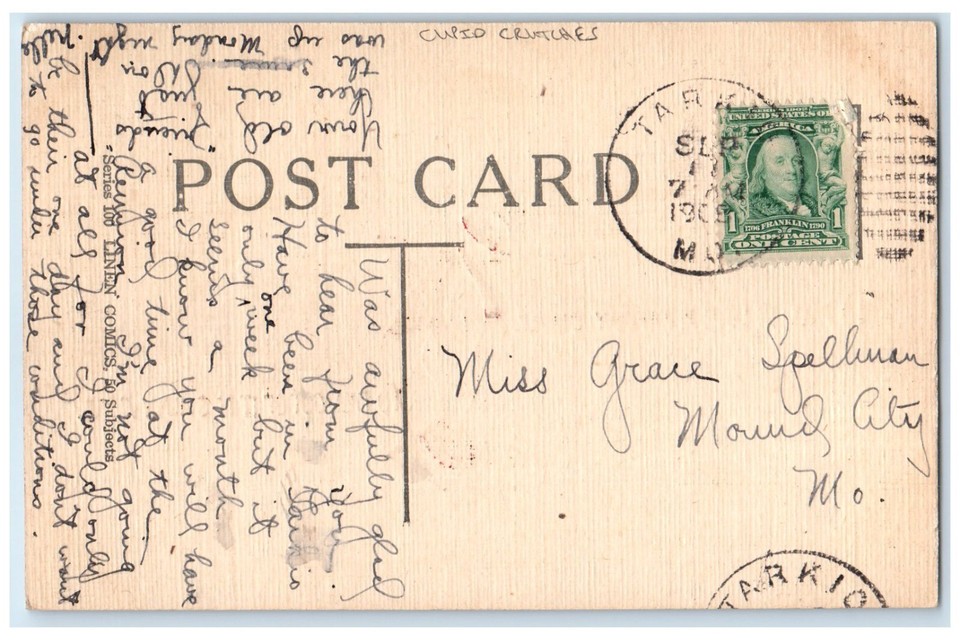 CUPID CRUTCHES
POST CARD
TARKIO
SEP
7 AM
1909
MO.
SERIES 1902
UNITED STATES OF
AMERICA
1706 FRANKLIN 1790
POSTAGE
1 ONE CENT 1
TARKIO
Miss Grace Spellman
Mound City
Mo.
Was awfully glad
to hear from you.
Have been in Tarkio
only one week but it
seems a month.
I know you will have
a good time at the
Reunion. I'm not going
at all for I could only
be there one day and I don't want
to go under those conditions.
Your old
friends
there are
"just
the same.
on
was up Monday night.
"Series 100 LINEN COMICS, 50 Subjects